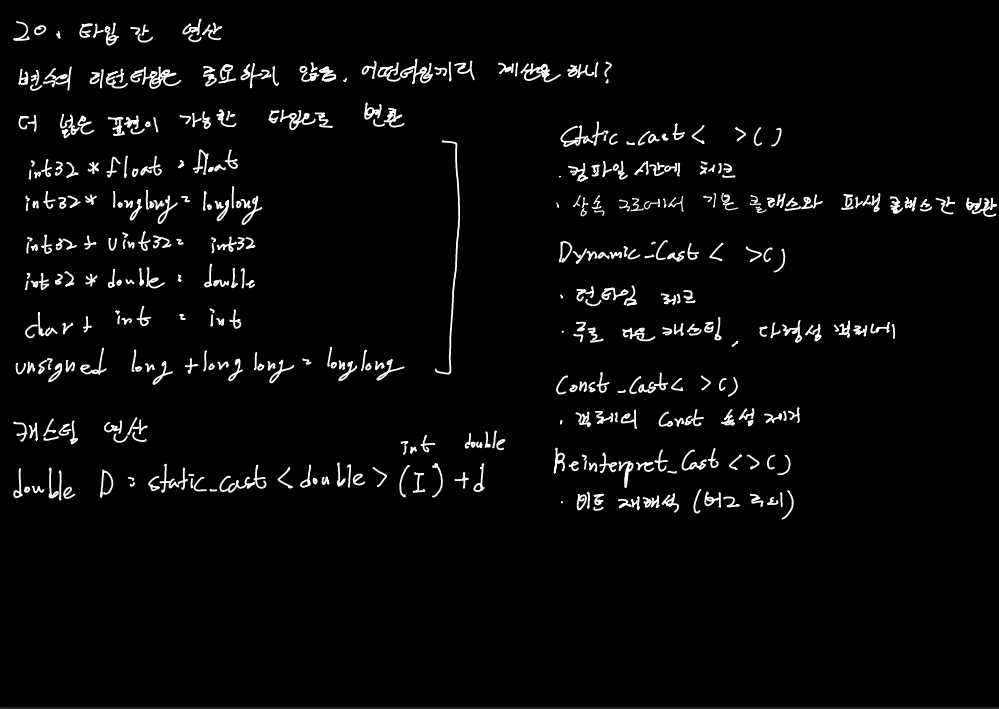 20. 타입 간 연산
변수의 리턴타입은 중요하지 않음. 어떤타입끼리 계산을 하니?
더 넓은 표현이 가능한 타입으로 변환
int32 * float = float
int32 * longlong = longlong
int32 + uint32 = int32
int32 * double = double
char + int = int
unsigned long + long long = longlong
캐스팅 연산
int double
double D = static_cast < double > (I) + d
Static_cast < > ( )
· 컴파일 시간에 체크
· 상속 구조에서 기본 클래스와 파생 클래스 간 변환
Dynamic_Cast < > ( )
· 런타임 체크
· 주로 다운 캐스팅, 다형성 객체에
Const_Cast < > ( )
· 객체의 Const 속성 제거
Reinterpret_Cast < > ( )
· 비트 재해석 (버그 주의)